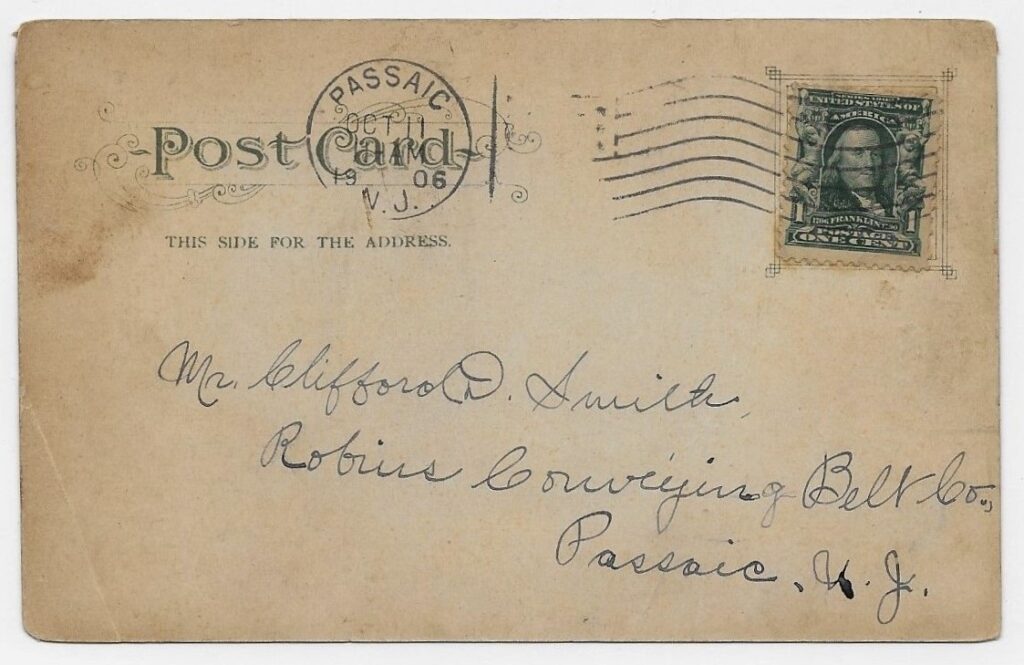 PASSAIC
OCT 11
11 AM
19 06
N.J.
Post Card
THIS SIDE FOR THE ADDRESS.
SERIES 1902
UNITED STATES OF
AMERICA
1 FRANKLIN 1
POSTAGE
ONE CENT
Mr. Clifford D. Smith,
Robins Conveying Belt Co.,
Passaic, N. J.